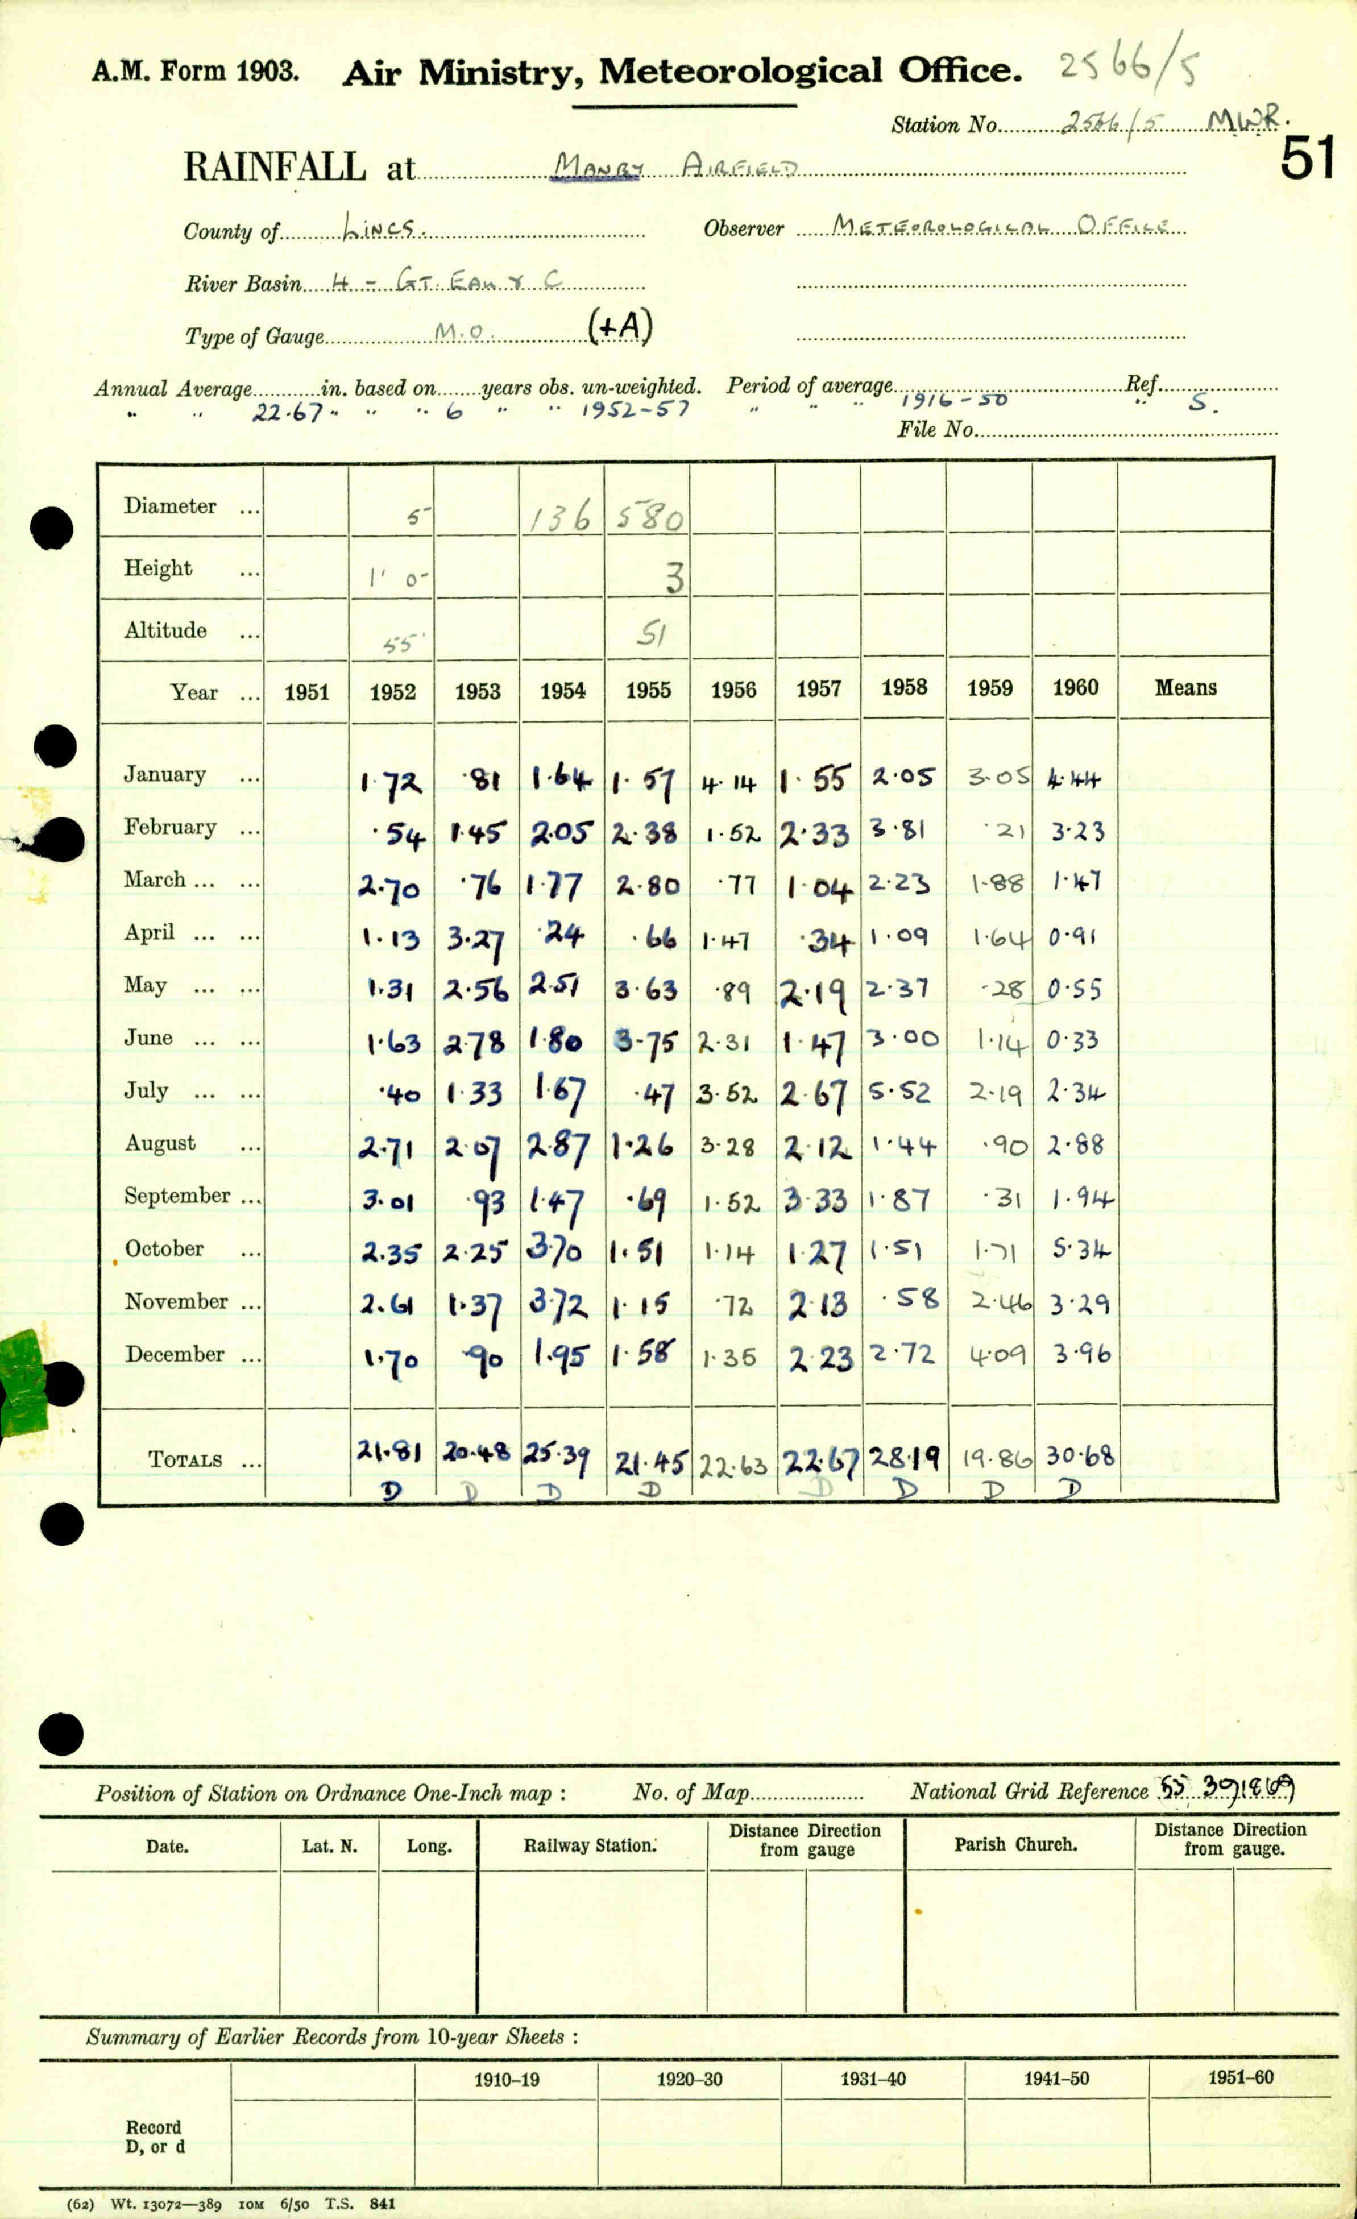 A.M. Form 1903. Air Ministry, Meteorological Office. 2566/5
Station No. 2566/5 MWR.
51
RAINFALL at MANBY AIRFIELD
County of LINCS. Observer METEOROLOGICAL OFFICE
River Basin 4 - GT. EAU & C
Type of Gauge M.O. (+A)
Annual Average in. based on years obs. un-weighted. Period of average Ref.
" " 22.67 " " " 6 " " 1952-57 " " " 1916-50 " S.
File No.
Diameter ... 5" 136 580
Height ... 1' 0" 3
Altitude ... 55' 51
Year ... 1951 1952 1953 1954 1955 1956 1957 1958 1959 1960 Means
January ... 1.72 .81 1.64 1.57 4.14 1.55 2.05 3.05 4.44
February ... .54 1.45 2.05 2.38 1.52 2.33 3.81 .21 3.23
March ... ... 2.70 .76 1.77 2.80 .77 1.04 2.23 1.88 1.47
April ... ... 1.13 3.27 .24 .66 1.47 .34 1.09 1.64 0.91
May ... ... 1.31 2.56 2.51 3.63 .89 2.19 2.37 .28 0.55
June ... ... 1.63 2.78 1.80 3.75 2.31 1.47 3.00 1.14 0.33
July ... ... .40 1.33 1.67 .47 3.52 2.67 5.52 2.19 2.34
August ... 2.71 2.07 2.87 1.26 3.28 2.12 1.44 .90 2.88
September ... 3.01 .93 1.47 .69 1.52 3.33 1.87 .31 1.94
October ... 2.35 2.25 3.70 1.51 1.14 1.27 1.51 1.71 5.34
November ... 2.61 1.37 3.72 1.15 .72 2.13 .58 2.46 3.29
December ... 1.70 .90 1.95 1.58 1.35 2.23 2.72 4.09 3.96
TOTALS ... 21.81 20.48 25.39 21.45 22.63 22.67 28.19 19.86 30.68
D D D D D D D D
Position of Station on Ordnance One-Inch map : No. of Map National Grid Reference 391869
Date. Lat. N. Long. Railway Station. Distance Direction from gauge Parish Church. Distance Direction from gauge.
Summary of Earlier Records from 10-year Sheets :
1910–19 1920–30 1931–40 1941–50 1951–60
Record
D, or d
(62) Wt. 13072—389 10M 6/50 T.S. 841